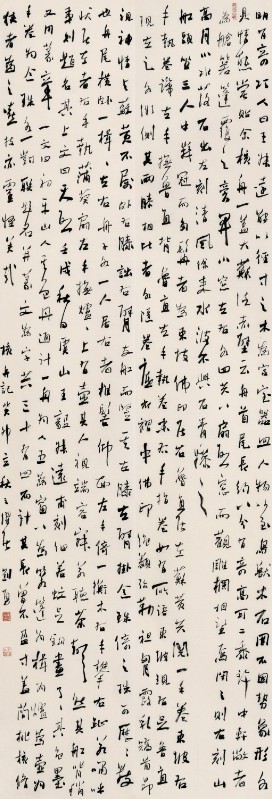 明有奇巧人曰王叔遠能以徑寸之木為宮室器皿人物以至鳥獸木石罔不因勢象形各
具情態嘗貽余核舟一蓋大蘇泛赤壁云舟首尾長約八分有奇高可二黍許中軒敞者
為艙箬篷覆之旁開小窗左右各四共八扇啟窗而觀雕欄相望焉閉之則右刻山
高月小水落石出左刻清風徐來水波不興石青糝之
船頭坐三人中峨冠而多髯者為東坡佛印居右魯直居左蘇黃共閱一手卷東坡右
手執卷端左手撫魯直背魯直左手執卷末右手指卷如有所語東坡現右足魯直
現左足各微側其兩膝相比者各隱卷底衣褶中佛印絕類彌勒袒胸露乳矯首昂
視神情與蘇黃不屬臥右膝詘右臂支船而豎其左膝左臂掛念珠倚之珠可歷歷數
也舟尾橫臥一楫楫左右舟子各一人居右者椎髻仰面左手倚一衡木右手攀右趾若嘯呼
狀居左者右手執蒲葵扇左手撫爐爐上有壺其人視端容寂若聽茶聲然其船背稍
夷則題名其上文曰天啟壬戌秋日虞山王毅叔遠甫刻細若蚊足鉤畫了了其色墨
又用篆章一文曰初平山人其色丹通計一舟為人五為窗八為箬篷為楫為爐為壺為
手卷為念珠各一對聯題名並篆文為字共三十有四而計其長曾不盈寸蓋簡桃核修
狹者為之嘻技亦靈怪矣哉 核舟記 癸卯立秋之 劉